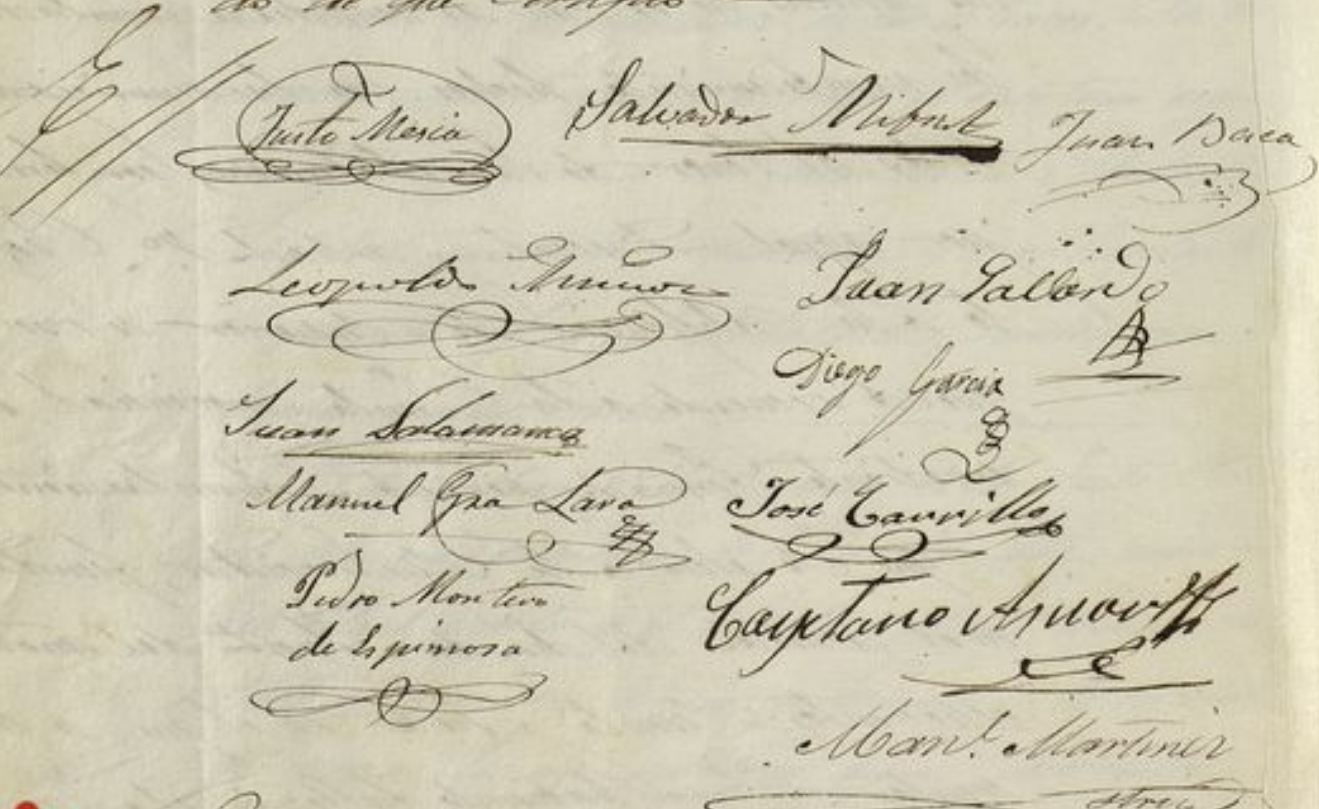 de que
Justo Mesia
Salvador
Juan Baca
Leopoldo Muñoz
Juan Gallardo
Diego Garcia
Juan Salamanca
Manuel Gra Lara
José Carrillo
Pedro Montero
de Espinosa
Cayetano
Manl. Martinez